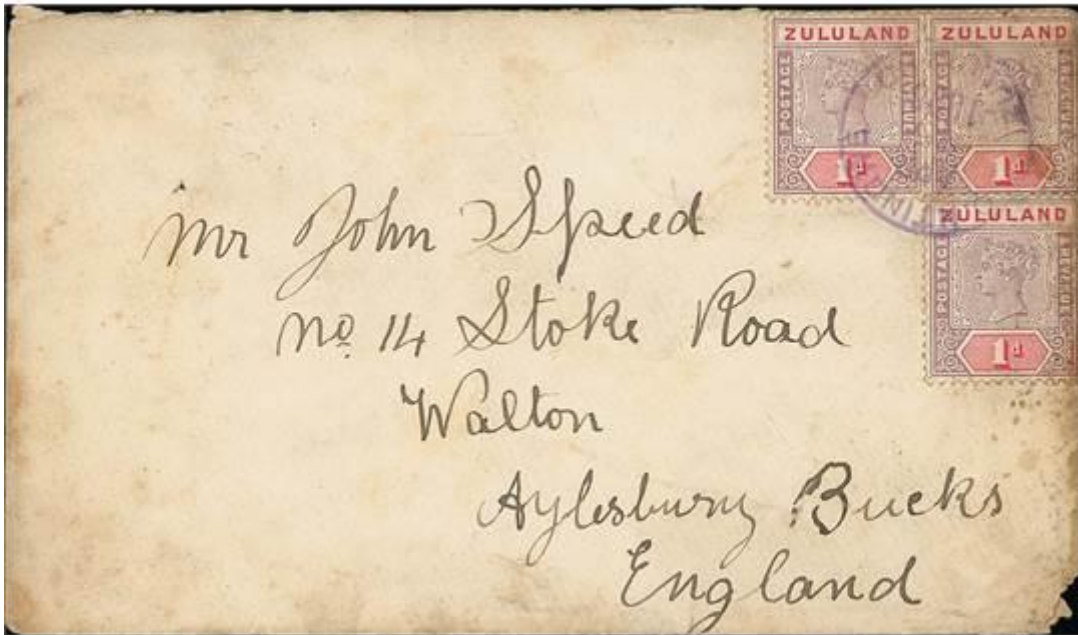 ZULULAND ZULULAND
POSTAGE REVENUE POSTAGE REVENUE
1d 1d
ZULULAND
POSTAGE REVENUE
1d
Mr John Speed
No 14 Stoke Road
Walton
Aylesbury Bucks
England